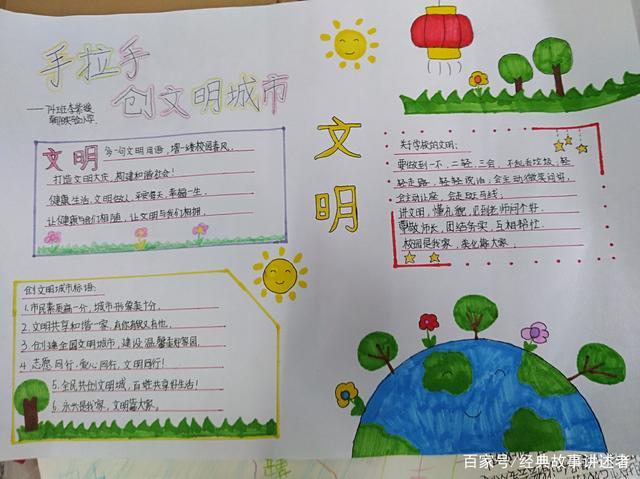 手拉手
创文明城市
文明
文明 多一句文明用语,增一缕校园春风。
打造文明大庆,构建和谐社会!
健康生活,文明做人,平安每天,幸福一生。
让健康与我们相随,让文明与我们相拥。
创文明城市标语:
1. 市民素质高一分,城市形象美十分。
2. 文明共享和谐一家,有你有我又有他。
3. 创建全国文明城市,建设温馨美好家园。
4. 志愿同行,爱心同行,文明同行!
5. 全民共创文明城,百姓共享好生活!
6. 永州是我家,文明靠大家。
关于学校的文明:
要做到一不,二轻,三会,不乱丢垃圾,轻
轻走路,轻轻说话,会主动微笑问好,
会主动让座,会走斑马线;
讲文明,懂礼貌,见到老师问个好。
尊敬师长,团结务实,互相帮忙
校园是我家,美化靠大家。
百家号/经典故事讲述者